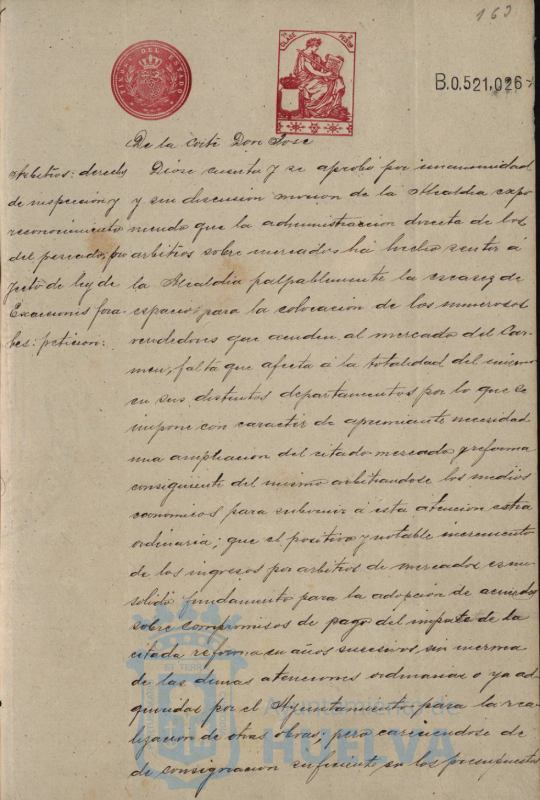 163
TIMBRE DEL ESTADO
CLASE
PESETA
B.0.521,026*
De la Corte Don Jose
Arbitrios: derechos
de inspección y
reconocimiento
del pescado, pro
yecto de ley de
Exacciones loca
les: petición:
Diose cuenta y se aprobó por unanimidad
y sin discusion mocion de la Alcaldia expo
niendo que la administracion directa de los
arbitrios sobre mercados há hecho sentir á
la Alcaldia palpablemente la escasez de
espacio para la colocacion de los numerosos
vendedores que acuden al mercado del Car-
men, falta que afecta á la totalidad del mismo
en sus distintos departamentos por lo que se
impone con caracter de apremiante necesidad
una ampliacion del citado mercado y reforma
consiguiente del mismo arbitrandose los medios
economicos para subvenir á esta atencion extra
ordinaria; que el positivo y notable incremento
de los ingresos por arbitrios de mercados es un
solido fundamento para la adopción de acuerdos
sobre compromisos de pago del importe de la
citada reforma en años sucesivos sin merma
de las demas atenciones ordinarias o ya ad-
quiridas por el Ayuntamiento para la rea-
lizacion de otras obras; pero careciendose de
de consignacion suficiente en los presupuestos
Ayuntamiento de
HUELVA